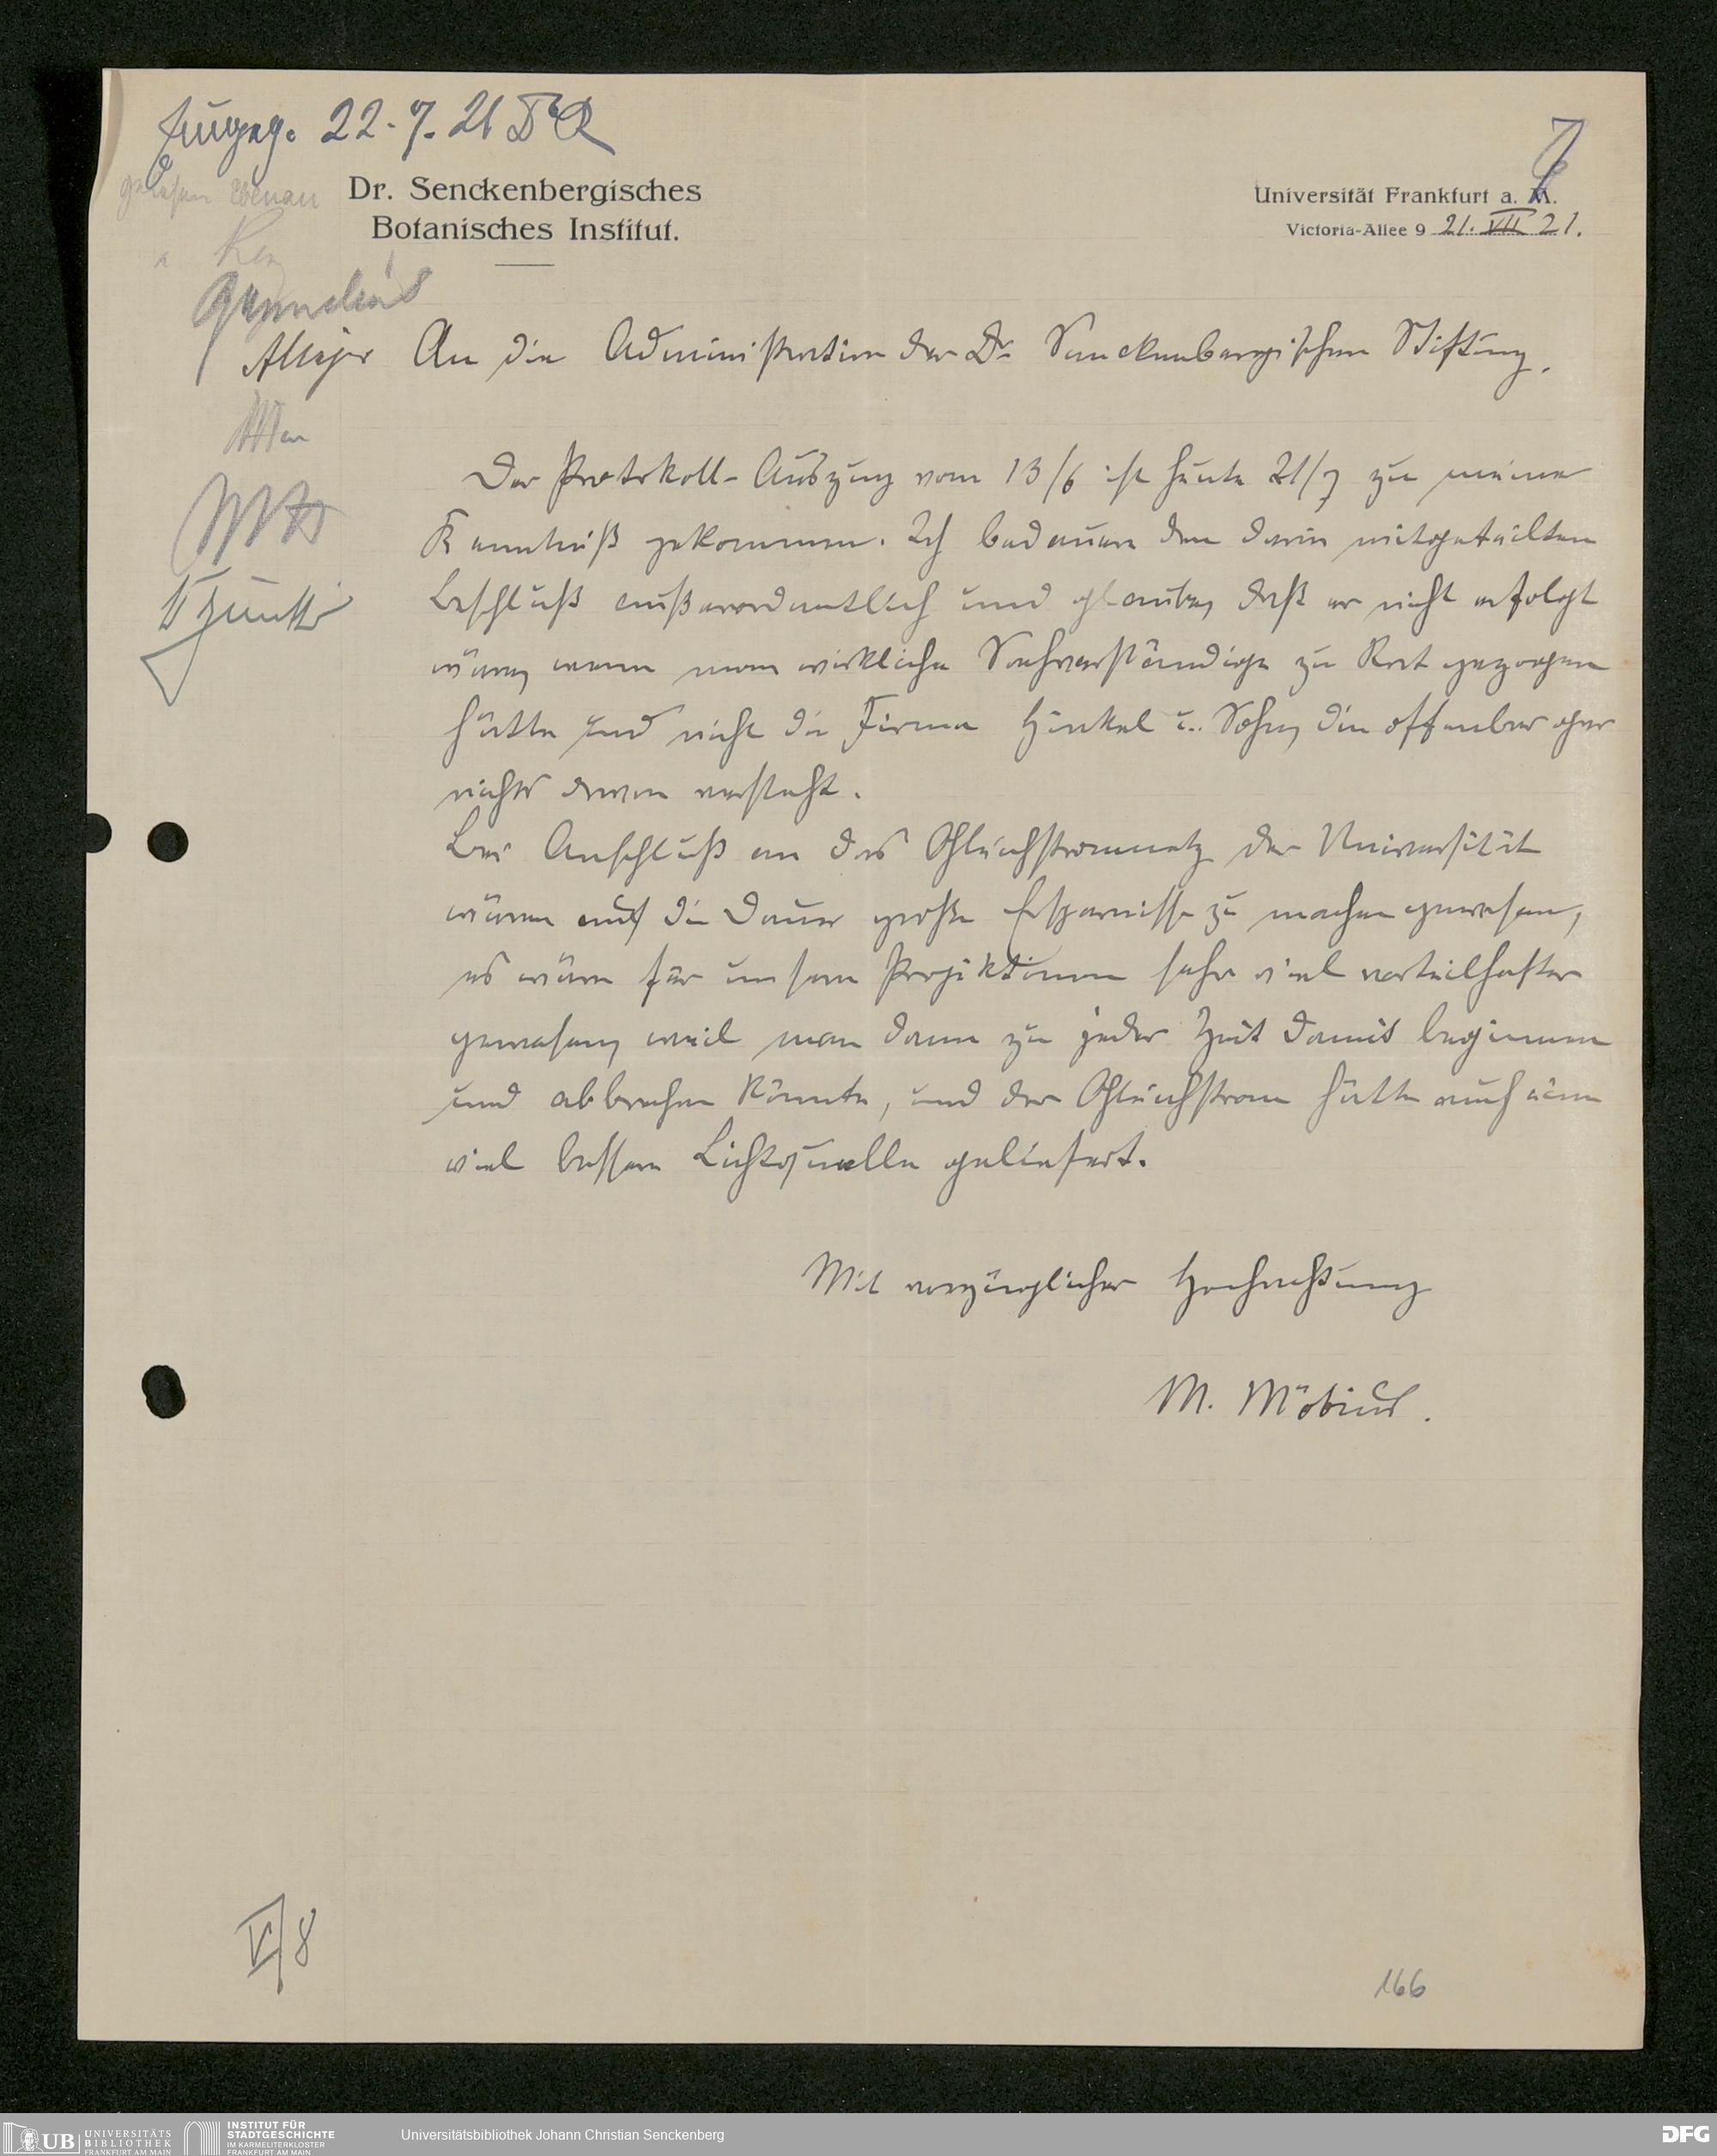 Eingeg. 22.7.21
Dr. Senckenbergisches
Botanisches Institut.
Universität Frankfurt a. M.
Victoria-Allee 9 21. VII 21.
gelesen
An die Administration der Dr. Senckenbergischen Stiftung.
Der Protokoll-Auszug vom 13/6 ist heute 21/7 zu meiner
Kenntniß gekommen. Ich bedauere den darin mitgeteilten
Beschluß außerordentlich und glaube, daß er nicht erfolgt
wäre, wenn man wirkliche Sachverständige zu Rat gezogen
hätte und nicht die Firma Hinkel u. Sohn, die offenbar gar
nichts davon versteht.
Bei Anschluß an das Gleichstromnetz der Universität
wären auf die Dauer große Ersparnisse zu machen gewesen,
es wäre für unsere Projektionen sehr viel vorteilhafter
gewesen, weil man dann zu jeder Zeit damit beginnen
und abbrechen könnte, und der Gleichstrom hätte auch eine
viel bessere Lichtquelle geliefert.
Mit vorzüglicher Hochachtung
M. Möbius.
V/8
166
UB UNIVERSITÄTS
BIBLIOTHEK
FRANKFURT AM MAIN
INSTITUT FÜR
STADTGESCHICHTE
IM KARMELITERKLOSTER
FRANKFURT AM MAIN
Universitätsbibliothek Johann Christian Senckenberg
DFG